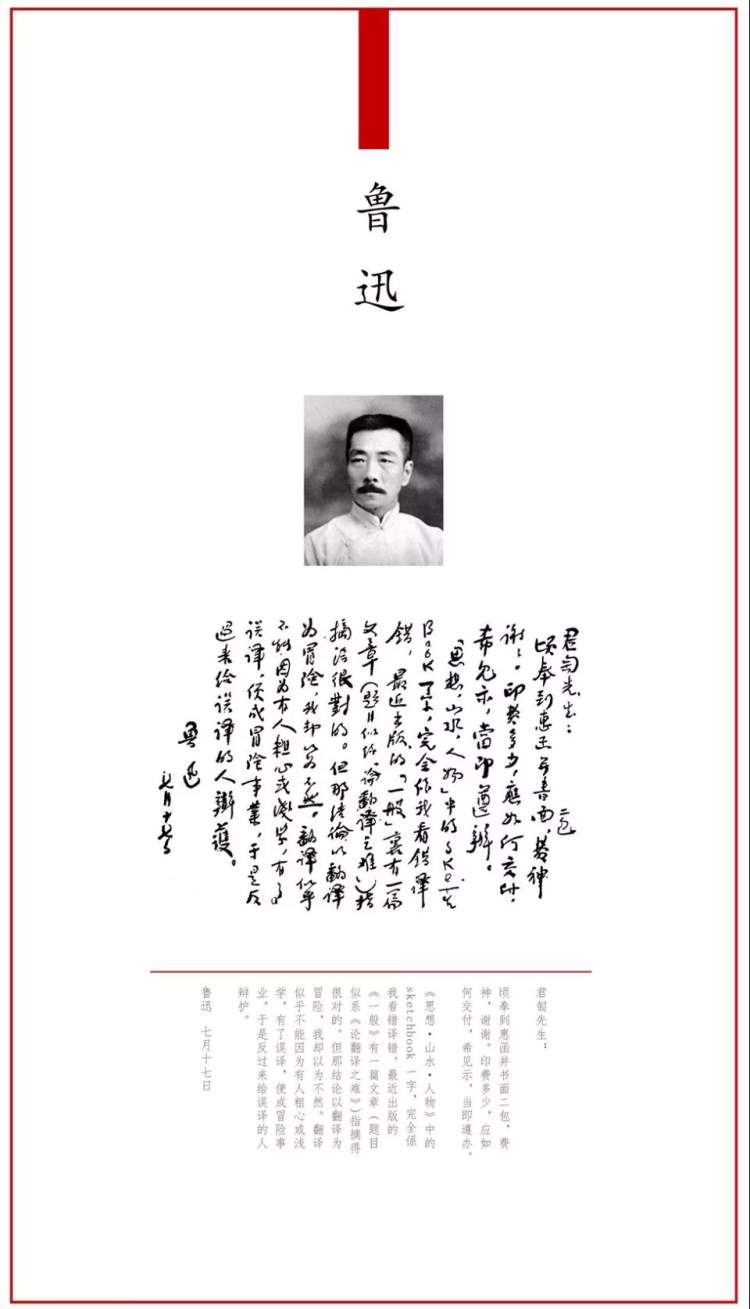 鲁迅
君匋先生：
頃奉到惠函并書面二包，费神
谢谢。印费多少，應如何交付，
希见示，當即遵辦。
「思想，山水，人物」中的 Sketch
Book 一字，完全係我看錯譯
錯，最近出版的「一般」裏有一篇
文章（题目似係「論翻譯之难」）指
摘得很對的。但那结論以翻譯
为冒险，我却以为不然。翻譯似乎
不能因为有人粗心或淺学，有了
误譯，便成冒险事業，于是反
過来给误譯的人辯護。
魯迅
七月十七日
君匋先生：
顷奉到惠函并书面二包，费
神，谢谢。印费多少，应如
何交付，希见示，当即遵办。
《思想·山水·人物》中的
sketchbook 一字，完全係
我看错译错。最近出版的
《一般》有一篇文章（题目
似系《论翻译之难》）指摘得
很对的。但那结论以翻译为
冒险，我却以为不然。翻译
似乎不能因为有人粗心或浅
学，有了误译，便成冒险事
业，于是反过来给误译的人
辩护。
鲁迅 七月十七日